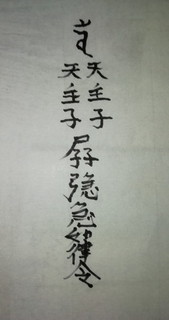 天主子
天主子
孱隱急如律令